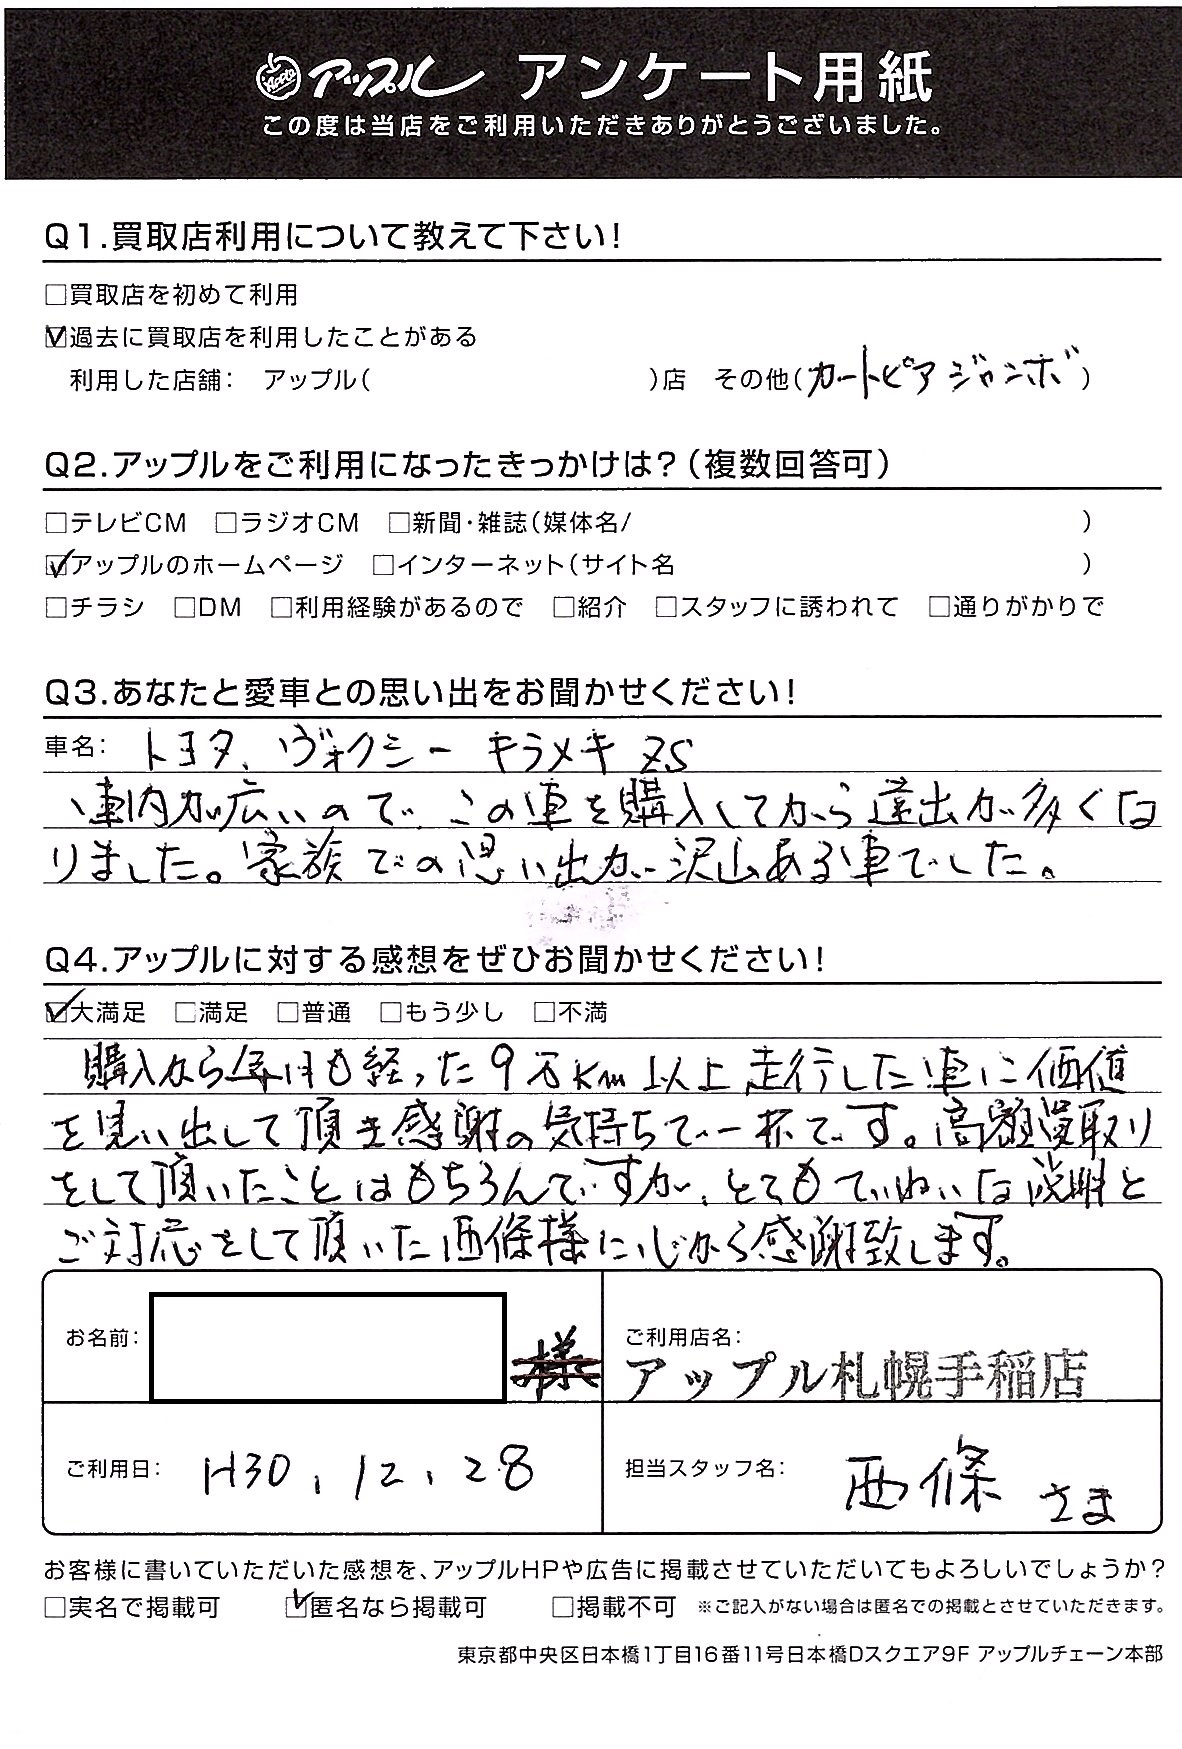 Apple アップル アンケート用紙
この度は当店をご利用いただきありがとうございました。
Q1.買取店利用について教えて下さい!
□買取店を初めて利用
☑過去に買取店を利用したことがある
利用した店舗: アップル( )店 その他(カートピアジャンボ)
Q2.アップルをご利用になったきっかけは?(複数回答可)
□テレビCM □ラジオCM □新聞・雑誌(媒体名/ )
☑アップルのホームページ □インターネット(サイト名 )
□チラシ □DM □利用経験があるので □紹介 □スタッフに誘われて □通りがかりで
Q3.あなたと愛車との思い出をお聞かせください!
車名: トヨタ、ヴォクシー キラメキ ZS
車内が広いので、この車を購入してから遠出が多くな
りました。家族での思い出が沢山ある車でした。
Q4.アップルに対する感想をぜひお聞かせください!
☑大満足 □満足 □普通 □もう少し □不満
購入から年月も経った9万Km以上走行した車に価値
を見い出して頂き感謝の気持ちで一杯です。高額買取り
をして頂いたことはもちろんですが、とてもていねいな説明と
ご対応をして頂いた西條様に心から感謝致します。
お名前: 様 ご利用店名:
アップル札幌手稲店
ご利用日: H30.12.28 担当スタッフ名: 西條 さま
お客様に書いていただいた感想を、アップルHPや広告に掲載させていただいてもよろしいでしょうか?
□実名で掲載可 ☑匿名なら掲載可 □掲載不可 ※ご記入がない場合は匿名での掲載とさせていただきます。
東京都中央区日本橋1丁目16番11号日本橋Dスクエア9F アップルチェーン本部